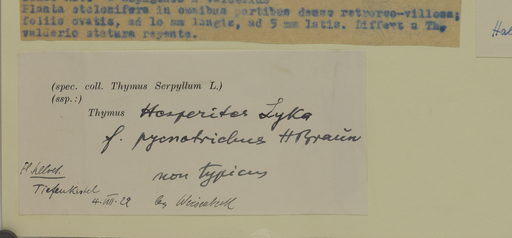 Planta stolonifera in omnibus partibus dense retrorso-villosa;
foliis ovatis, ad 10 mm longis, ad 5 mm latis. Differt a Th.
valderio statura repente.
(spec. coll. Thymus Serpyllum L.)
(ssp.:)
Thymus Hesperites Lyka
f. pycnotrichus HBraun
non typicus
Tiefenkastel
4.VIII.29 leg